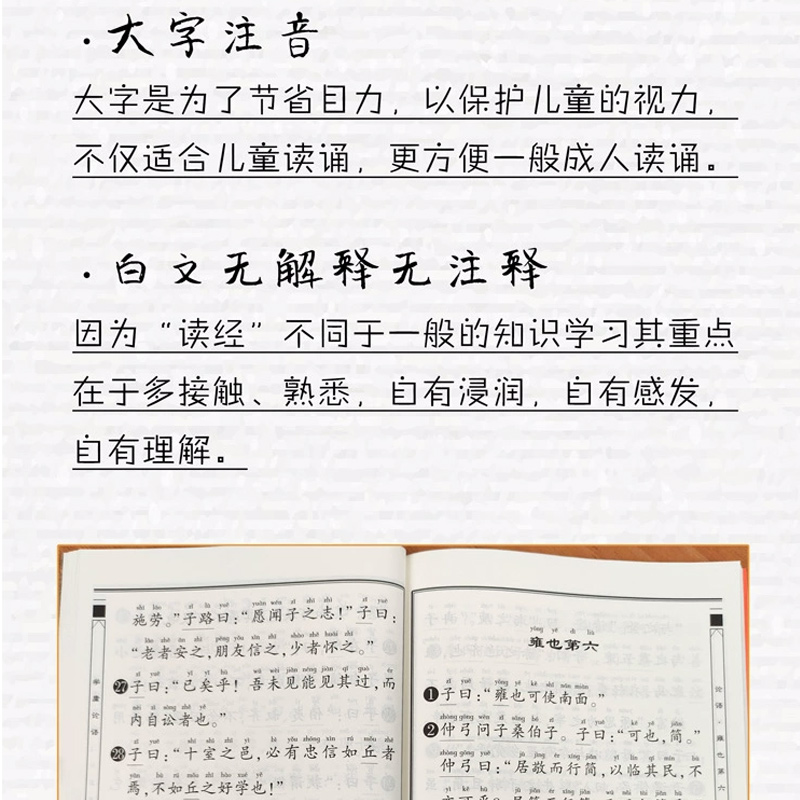 ·大字注音
大字是为了节省目力，以保护儿童的视力，
不仅适合儿童读诵，更方便一般成人读诵。
·白文无解释无注释
因为“读经”不同于一般的知识学习其重点
在于多接触、熟悉，自有浸润，自有感发，
自有理解。
施劳。”子路曰：“愿闻子之志！”子曰：
“老者安之，朋友信之，少者怀之。”
㉗子曰：“已矣乎！吾未见能见其过，而
内自讼者也。”
㉘子曰：“十室之邑，必有忠信如丘者
焉，不如丘之好学也！”
yōng yě dì liù
雍也第六
❶子曰：“雍也可使南面。”
❷仲弓问子桑伯子。子曰：“可也，简。”
仲弓曰：“居敬而行简，以临其民，不
论语·雍也第六